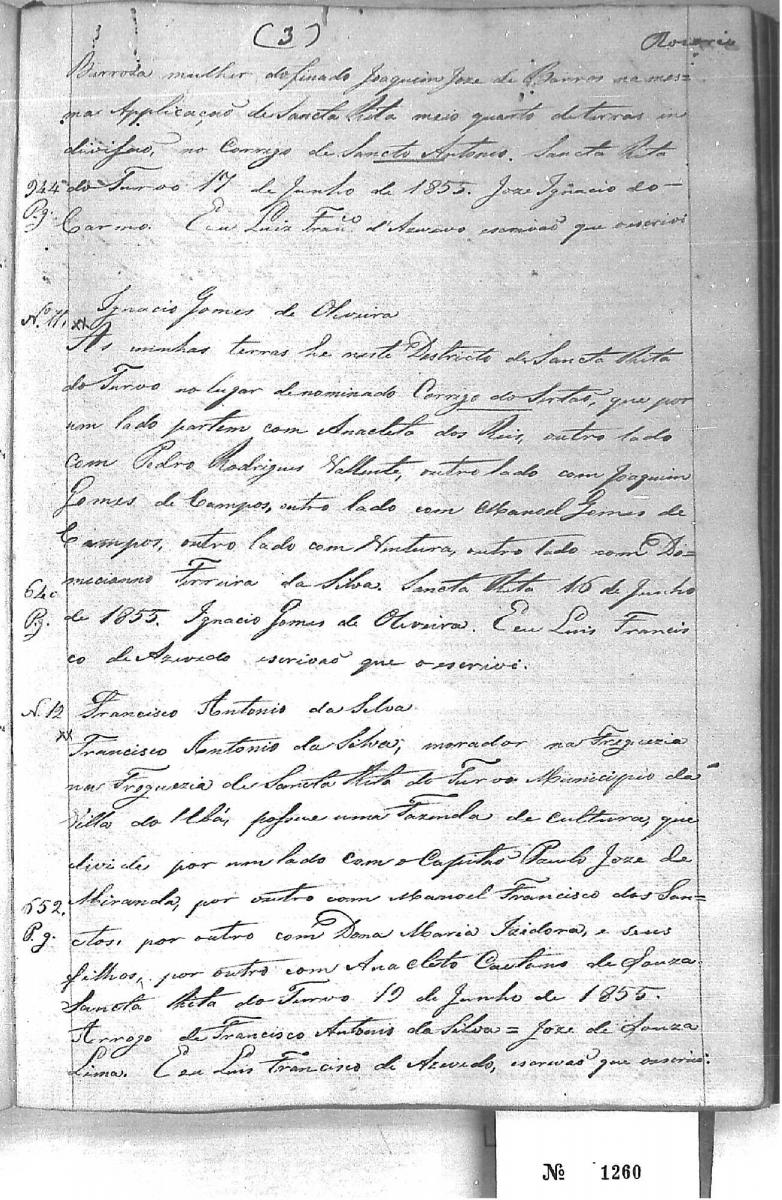 (3)
Barroza mulher do finado Joaquim Joze de Barros na mes=
ma Applicação de Sancta Rita meio quarto de terras in
divisas, no Corrego de Sancto Antonio. Sancta Rita
944 do Turvo 17 de Junho de 1855. Joze Ignacio do
Pg. Carmo. E eu Luiz Fran.co d'Azevedo escrivaõ que o escrivi
Nº 11. Ignacio Gomes de Oliveira
As minhas terras he neste Destricto de Sancta Rita
do Turvo no lugar denominado Corrego do Sertaõ, que por
um lado partem com Anacleto dos Reis, outro lado
com Pedro Rodrigues Vallente, outro lado com Joaquim
Gomes de Campos, outro lado com Manoel Gomes de
Campos, outro lado com Ventura, outro lado com Do=
640 micianno Ferreira da Silva. Sancta Rita 16 de Junho
Pg. de 1855. Ignacio Gomes de Oliveira. E eu Luis Francis
co de Azevedo escrivaõ que o escrivi.
N. 12 Francisco Antonio da Silva
xx Francisco Antonio da Silva, morador na Freguezia
na Freguezia de Sancta Rita do Turvo Municipio da
Villa do Ubá, possue uma Fazenda de cultura, que
divide por um lado com o Capitaõ Paulo Joze de
652. Miranda, por outro com Manoel Francisco dos San=
Pg. ctos, por outro com Dona Maria Izidora, e seus
filhos, por outro com Anacleto Caetano de Souza.
Sancta Rita do Turvo 19 de Junho de 1855.
Arrogo de Francisco Antonio da Silva = Joze de Souza
Lima. E eu Luis Francisco de Azevedo, escrivaõ que o escrivi.
Nº 1260